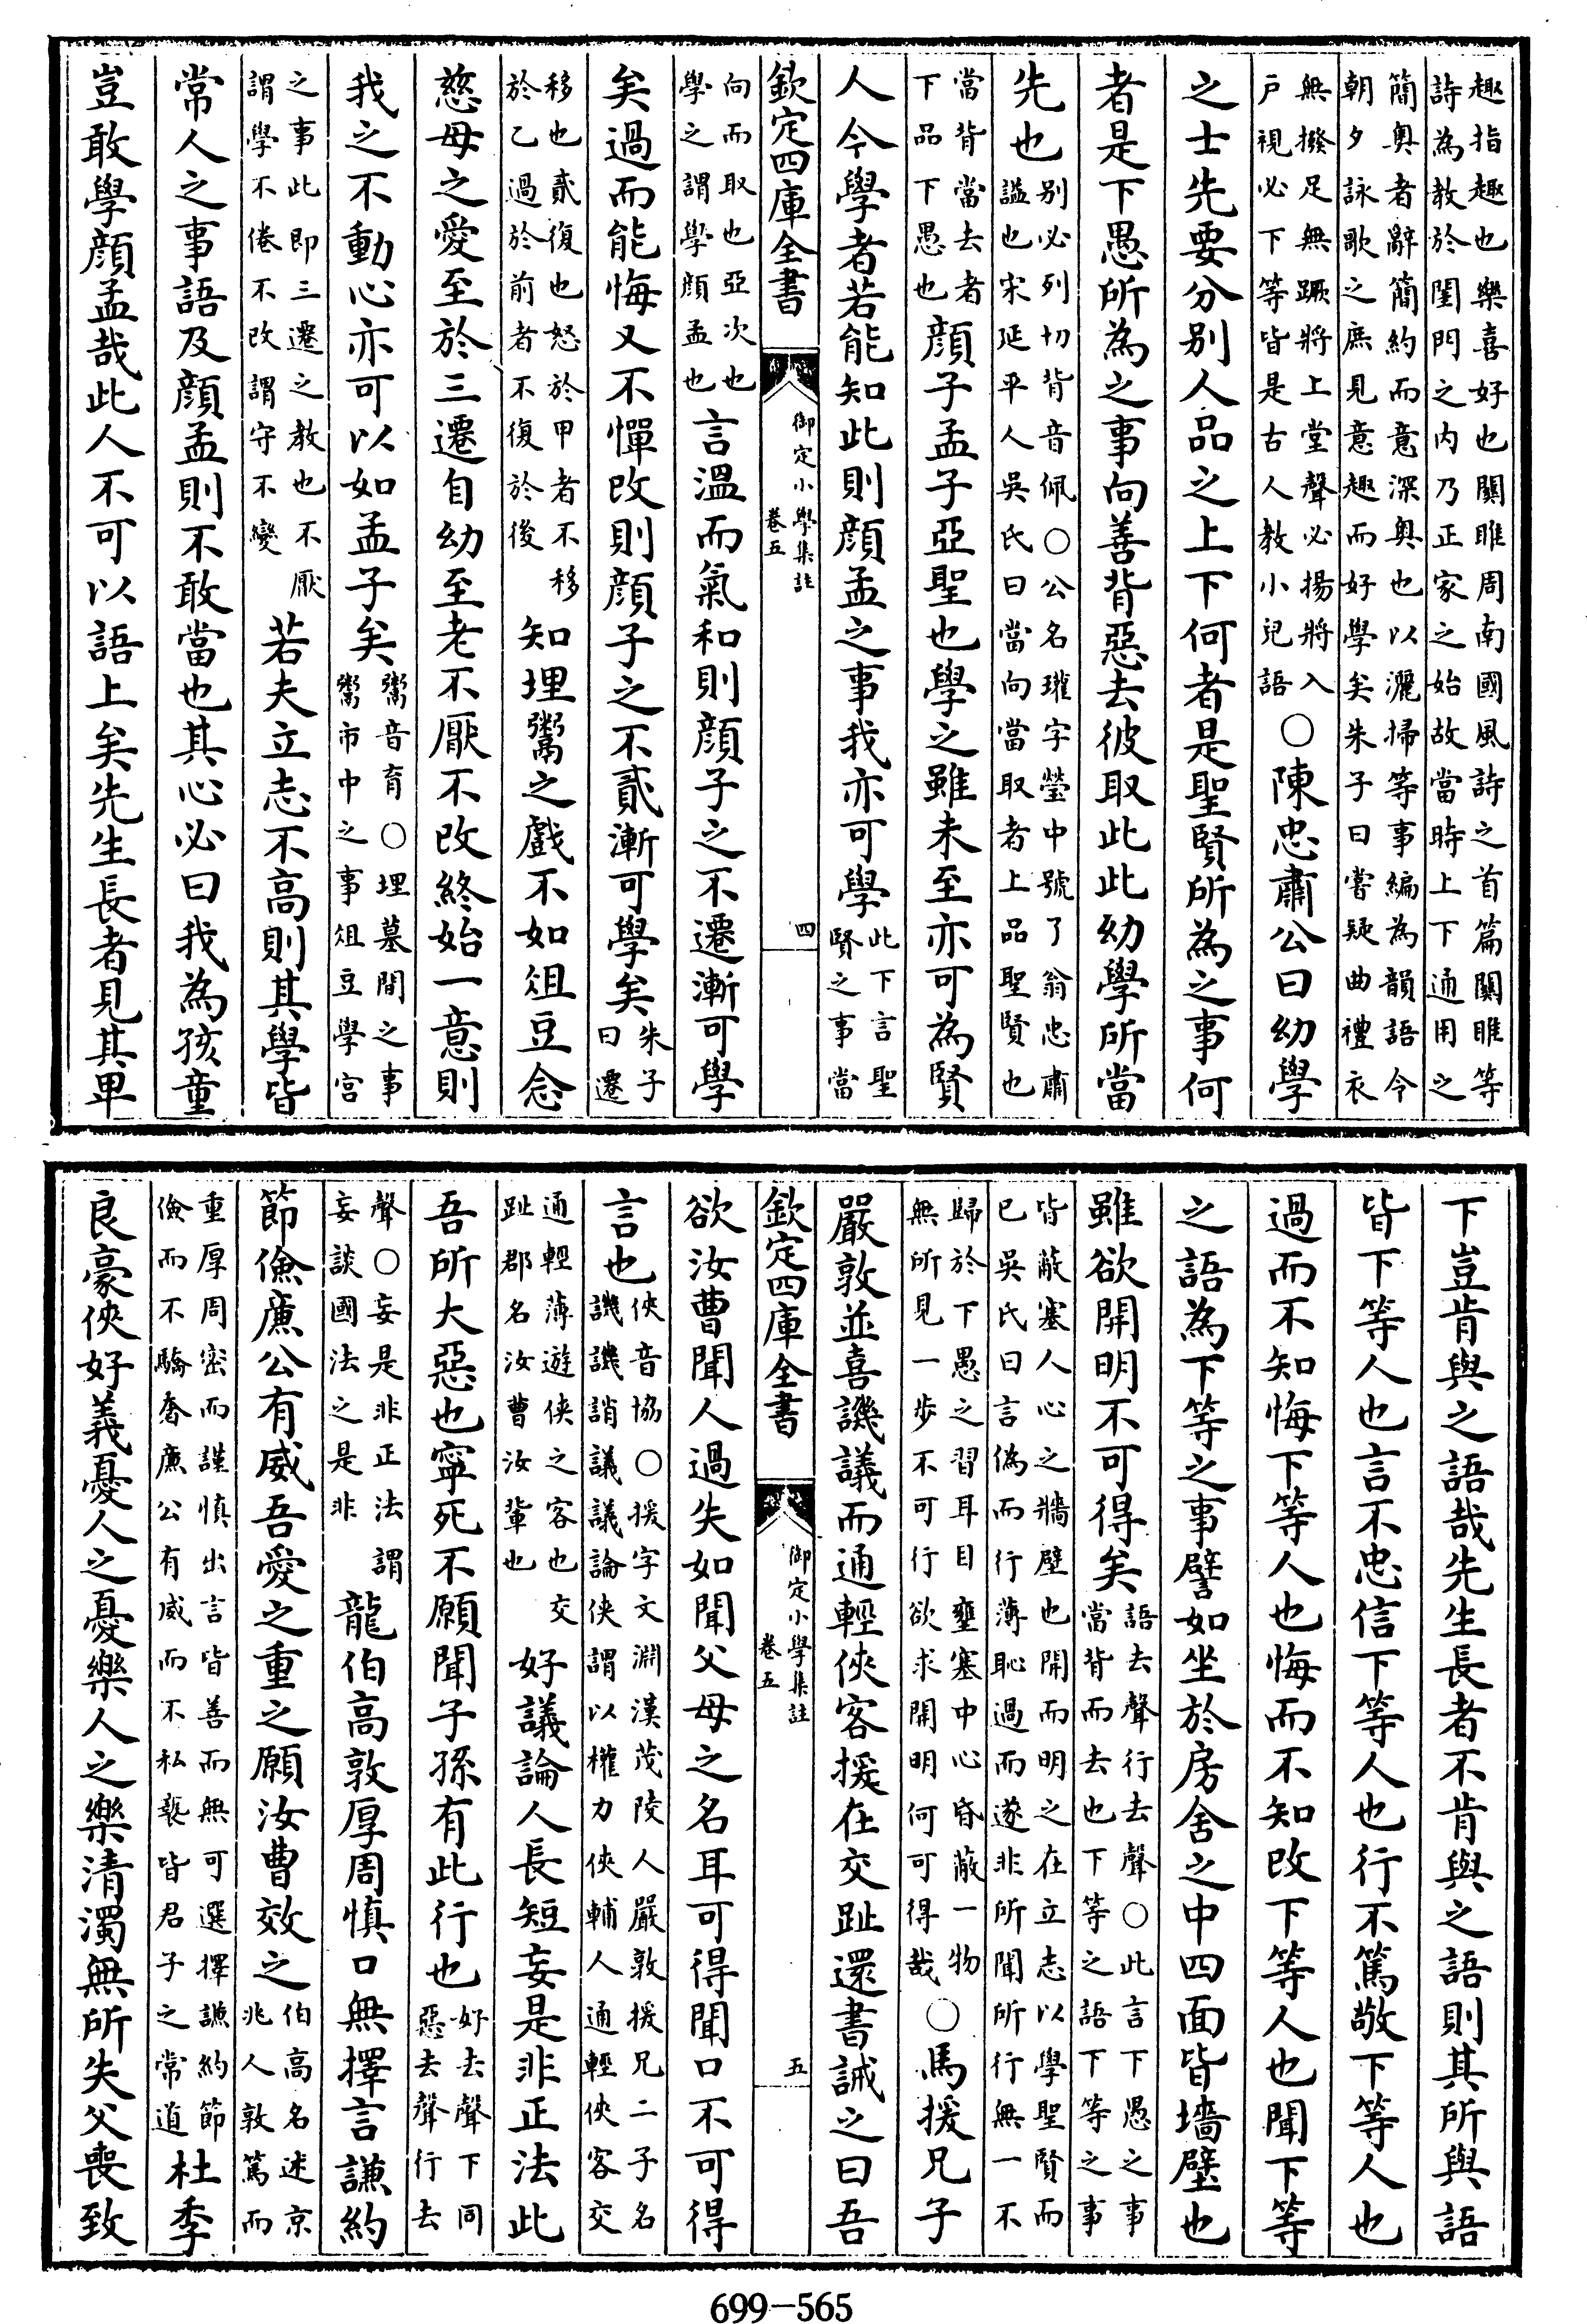 趣指趣也樂喜好也關雎周南國風詩之首篇關雎等
詩為教於閨門之内乃正家之始故當時上下通用之
簡奥者辭簡約而意深奥也以灑掃等事編為韻語今
朝夕詠歌之庶見意趣而好學矣朱子曰嘗疑曲禮衣
無撥足無蹶將上堂聲必揚將入
戶視必下等皆是古人教小兒語
○陳忠肅公曰幼學
之士先要分别人品之上下何者是聖賢所為之事何
者是下愚所為之事向善背惡去彼取此此幼學所當
先也
别必列切背音佩○公名瓘字瑩中號了翁忠肅
謚也宋延平人吳氏曰當向當取者上品聖賢也
當背當去者
下品下愚也
顔子孟子亞聖也學之雖未至亦可為賢
人今學者若能知此則顔孟之事我亦可學
此下言聖
賢之事當
欽定四庫全書
御定小學集註
卷五
四
向而取也亞次也
學之謂學顔孟也
言溫而氣和則顔子之不遷漸可學
矣過而能悔又不憚改則顔子之不貳漸可學矣
朱子
曰遷
移也貳復也怒於甲者不移
於乙過於前者不復於後
知埋鬻之戲不如俎豆念
慈母之愛至於三遷自幼至老不厭不改終始一意則
我之不動心亦可以如孟子矣
鬻音育○埋墓間之事
鬻市中之事俎豆學宮
之事此即三遷之教也不厭
謂學不倦不改謂守不變
若夫立志不高則其學皆
常人之事語及顔孟則不敢當也其心必曰我為孩童
豈敢學顔孟哉此人不可以語上矣先生長者見其卑
下豈肯與之語哉先生長者不肯與之語則其所與語
皆下等人也言不忠信下等人也行不篤敬下等人也
過而不知悔下等人也悔而不知改下等人也聞下等
之語為下等之事譬如坐於房舍之中四面皆墻壁也
雖欲開明不可得矣
語去聲行去聲○此言下愚之事
當背而去也下等之語下等之事
皆蔽塞人心之牆壁也開而明之在立志以學聖賢而
已吳氏曰言偽而行薄恥過而遂非所聞所行無一不
歸於下愚之習耳目壅塞中心昏蔽一物
無所見一步不可行欲求開明何可得哉
○馬援兄子
嚴敦並喜譏議而通輕俠客援在交趾還書誡之曰吾
欽定四庫全書
御定小學集註
卷五
五
欲汝曹聞人過失如聞父母之名耳可得聞口不可得
言也
俠音協○援字文淵漢茂陵人嚴敦援兄二子名
譏譏誚議議論俠謂以權力俠輔人通輕俠客交
通輕薄遊俠之客也交
趾郡名汝曹汝輩也
好議論人長短妄是非正法此
吾所大惡也寧死不願聞子孫有此行也
好去聲下同
惡去聲行去
聲○妄是非正法謂
妄談國法之是非
龍伯高敦厚周慎口無擇言謙約
節儉廉公有威吾愛之重之願汝曹效之
伯高名述京
兆人敦篤而
重厚周密而謹慎出言皆善而無可選擇謙約節
儉而不驕奢廉公有威而不私褻皆君子之常道
杜季
良豪俠好義憂人之憂樂人之樂清濁無所失父喪致
699-565